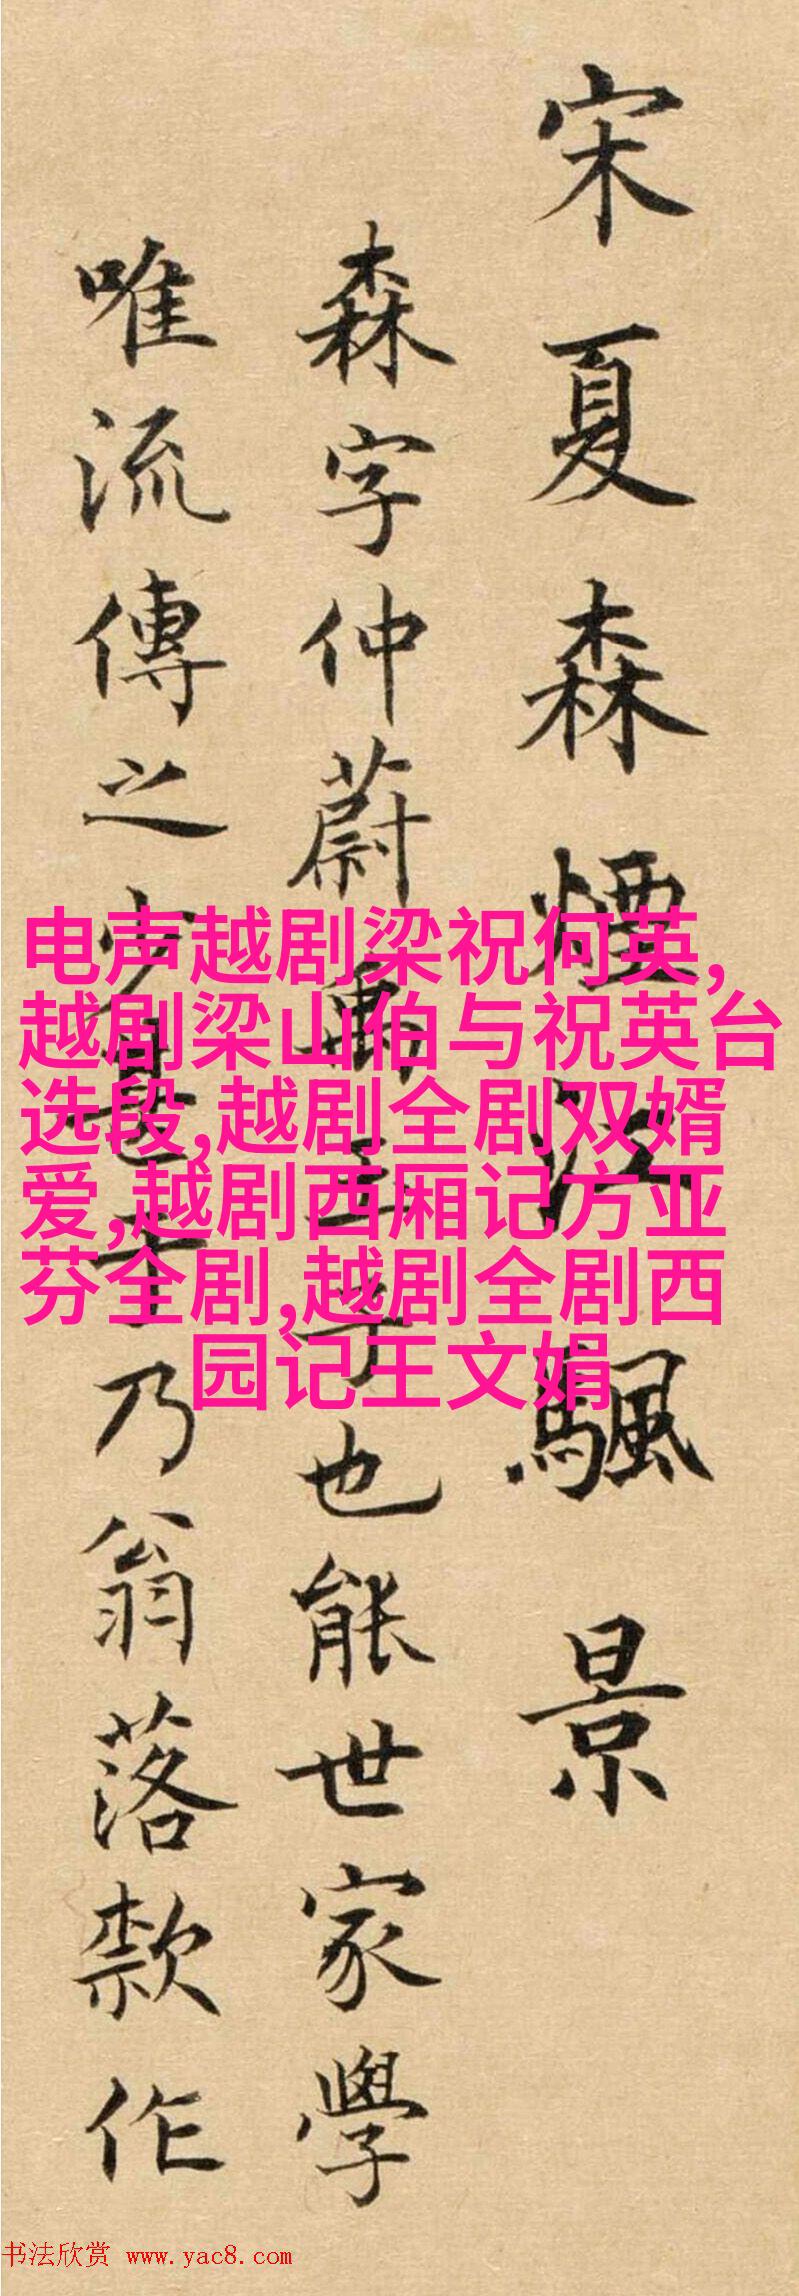 宋夏森煙江颿景
森字仲蔚禹玉子也能世家學
唯流傳之少甚于乃翁落款作
电声越剧梁祝何英,
越剧梁山伯与祝英台
选段,越剧全剧双婿
爱,越剧西厢记方亚
芬全剧,越剧全剧西
园记王文娟
书法欣赏 www.yac8.com